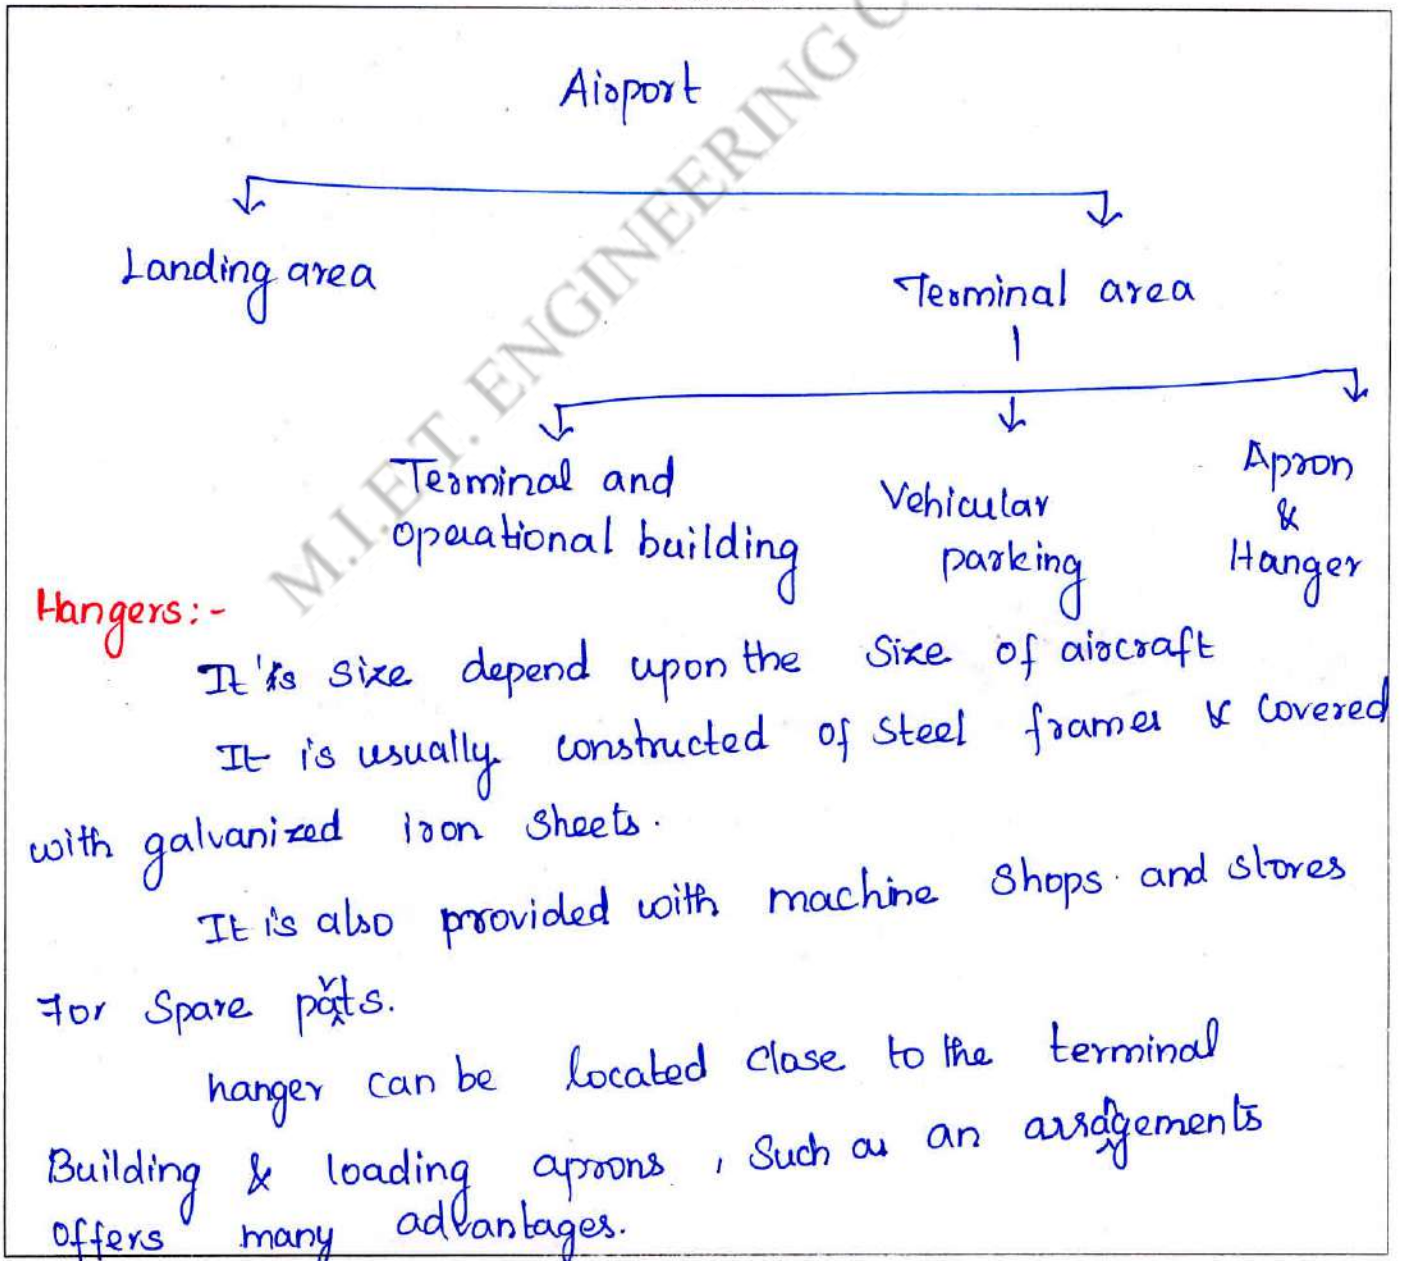 Airport
Landing area
Terminal area
Terminal and
operational building
Vehicular
parking
Apron
&
Hanger
Hangers:-
It's size depend upon the size of aircraft
It is usually constructed of steel frames & covered
with galvanized iron sheets.
It is also provided with machine shops and stores
For spare parts.
hanger can be located close to the terminal
Building & loading aprons, such as an arrangements
offers many advantages.
M.I.E.T. ENGINEERING C